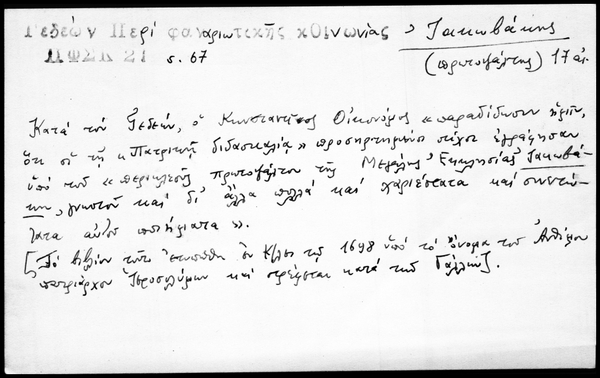 Γεδεών Περί φαναριωτικῆς κοινωνίας, Ἰακωβάκης
ΠΦΣΚ 21 σ. 67 (πρωτοψάλτης) 17 αἰ.
Κατά τόν Γεδεών, ὁ Κωνσταντῖνος Οἰκονόμος «παραδίδωσιν ἡμῖν,
ὅτι οἱ τῇ «Πατρικῇ διδασκαλίᾳ» προσηρτημένοι στίχοι ἐγράφησαν
ὑπό τοῦ «περικλεοῦς πρωτοψάλτου τῆς Μεγάλης Ἐκκλησίας Ἰακωβά-
κη, γνωστοῦ καί δι' ἄλλα πολλά καί χαριέστατα καί συνετώ-
τατα αὐτοῦ ποιήματα».
[Τό βιβλίον τοῦτο ἐτυπώθη ἐν Κ/λει τῷ 1698 ὑπό τό ὄνομα τοῦ Ἀνθίμου
πατριάρχου Ἱεροσολύμων καί στρέφεται κατά τῶν Γάλλων].